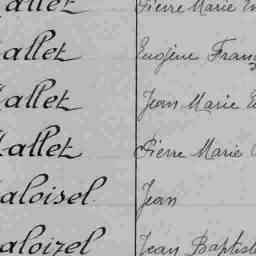 allet Pierre Marie
allet Eugène Franç
allet Jean Marie
allet Pierre Marie
aloisel Jean
aloizel Jean Baptist